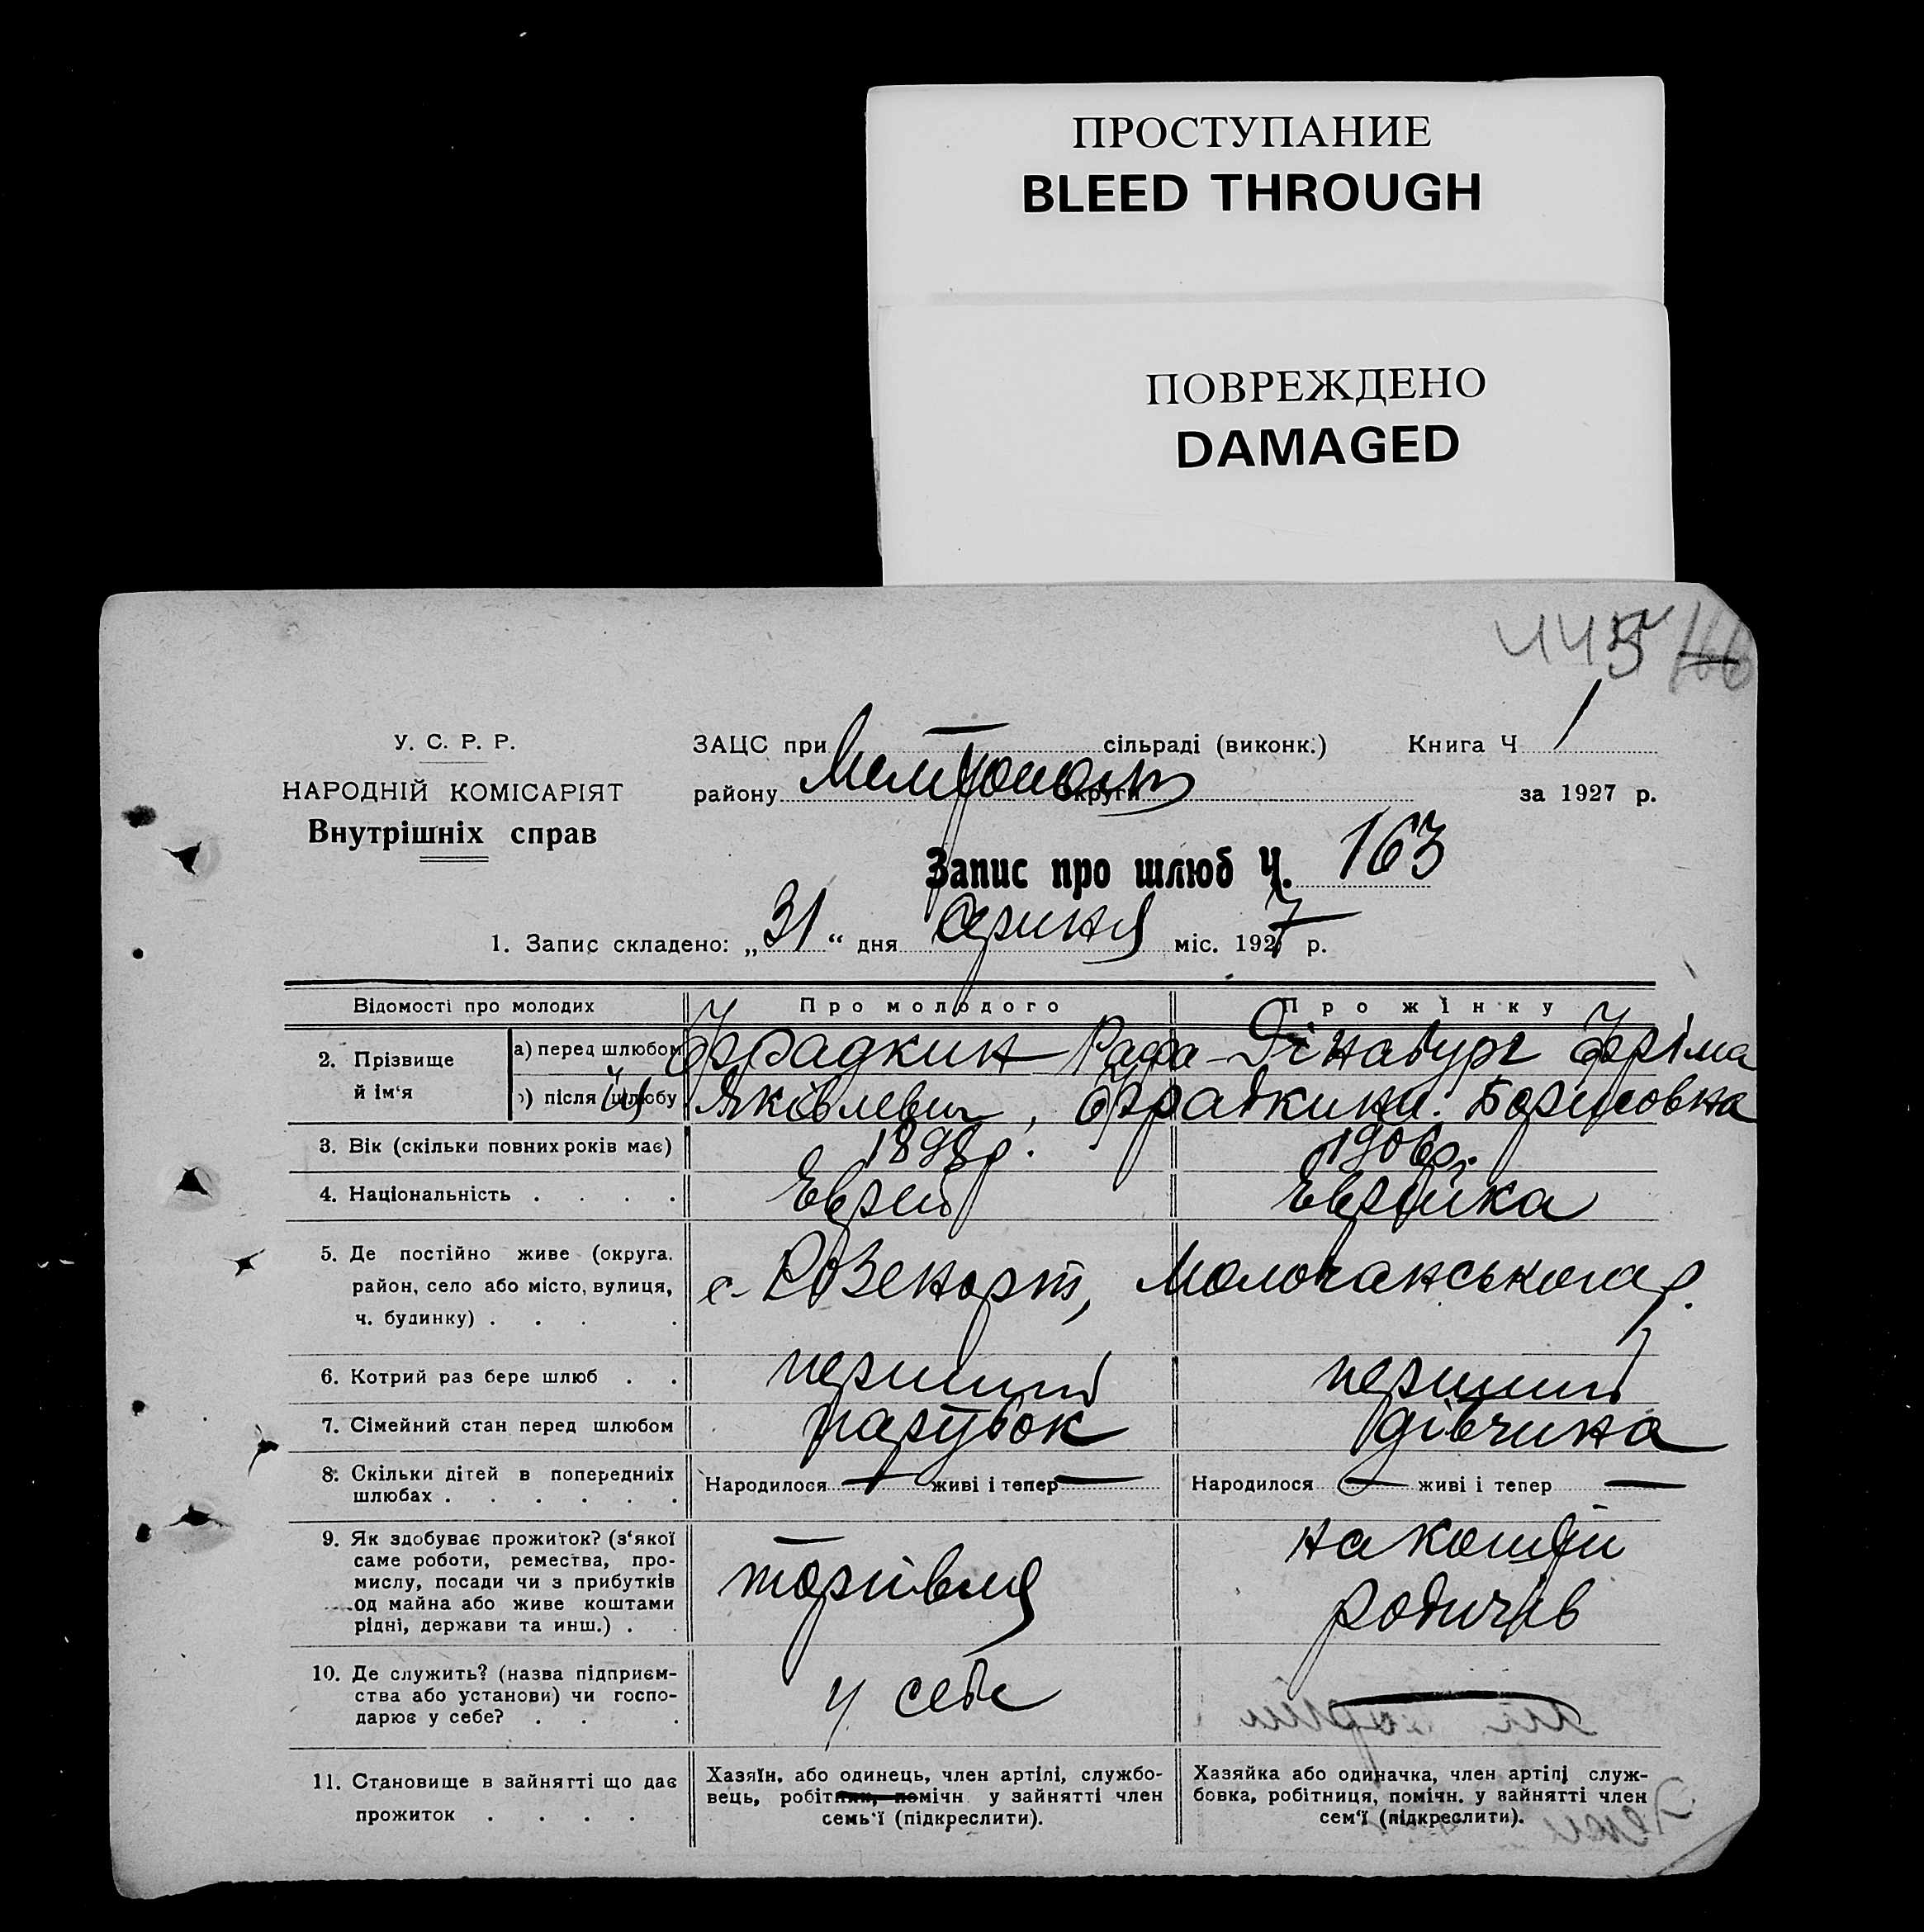 ПРОСТУПАНИЕ
BLEED THROUGH
ПОВРЕЖДЕНО
DAMAGED
445
У. С. Р. Р.
НАРОДНІЙ КОМІСАРІЯТ
Внутрішніх справ
ЗАЦС при сільраді (виконк.) Книга Ч 1
району округи за 1927 р.
Запис про шлюб Ч. 163
1. Запис складено: „31“ дня серпня міс. 1927 р.
Відомості про молодих Про молодого Про жінку
2. Прізвище й ім‘я
а) перед шлюбом Фрадкин Рафа- Дінабург Фріма
після шлюбу Яківлевич, Фрадкина. Борисовна
3. Вік (скільки повних років має) 1898р. 1906р.
4. Національність . . . . Еврей Еврейка
5. Де постійно живе (округа.
район, село або місто, вулиця,
ч. будинку) . . . .
с. Розенорт, Молочанського р.
6. Котрий раз бере шлюб . . перший перший
7. Сімейний стан перед шлюбом парубок дівчина
8. Скільки дітей в попередниіх
шлюбах . . . . . .
Народилося — живі і тепер — Народилося — живі і тепер —
9. Як здобуває прожиток? (з‘якої
саме роботи, ремества, про-
мислу, посади чи з прибутків
од майна або живе коштами
рідні, держави та инш.) . .
торгівля
на кошти
родичів
10. Де служить? (назва підприєм-
ства або установи) чи госпо-
дарює у себе? . . .
у себе —
11. Становище в зайнятті що дає
прожиток . . . .
Хазяїн, або одинець, член артілі, службо-
вець, робітник, помічн у зайнятті член
семь‘ї (підкреслити).
Хазяйка або одиначка, член артілі служ-
бовка, робітниця, помічн. у зайнятті член
сем‘ї (підкреслити).